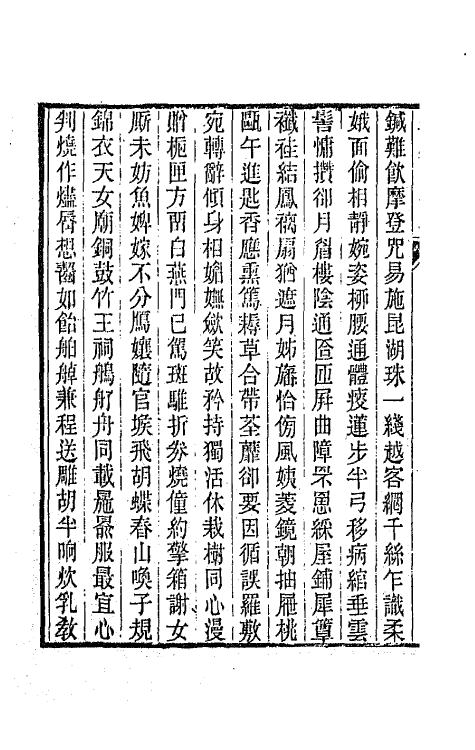 鍼難飲摩登咒易施昆湖珠一綫越客網千絲乍識柔
娥面偷相靜婉姿柳腰通體瘦蓮步半弓移病綰垂雲
髻慵攢卻月眉樓陰通匼匝屏曲障罘罳綵屋鋪犀簟
襳袿結鳳褵扇猶遮月姊旛恰傍風姨菱鏡朝抽屜桃
甌午進匙香應熏篤耨草合帶荃蘼卻要因循誤羅敷
宛轉辭傾身相媚嫵斂笑故矜持獨活休栽樹同心漫
贈梔匣方留白燕門已駕斑騅折券燒僮約擎箱謝女
廝未妨魚婢嫁不分鴈孃隨官堠飛胡蝶春山喚子規
錦衣天女廟銅鼓竹王祠鵃舟同載毾服最宜心
刲燒作燼脣想醫如飴舶趠兼程送雕胡半晌炊乳教